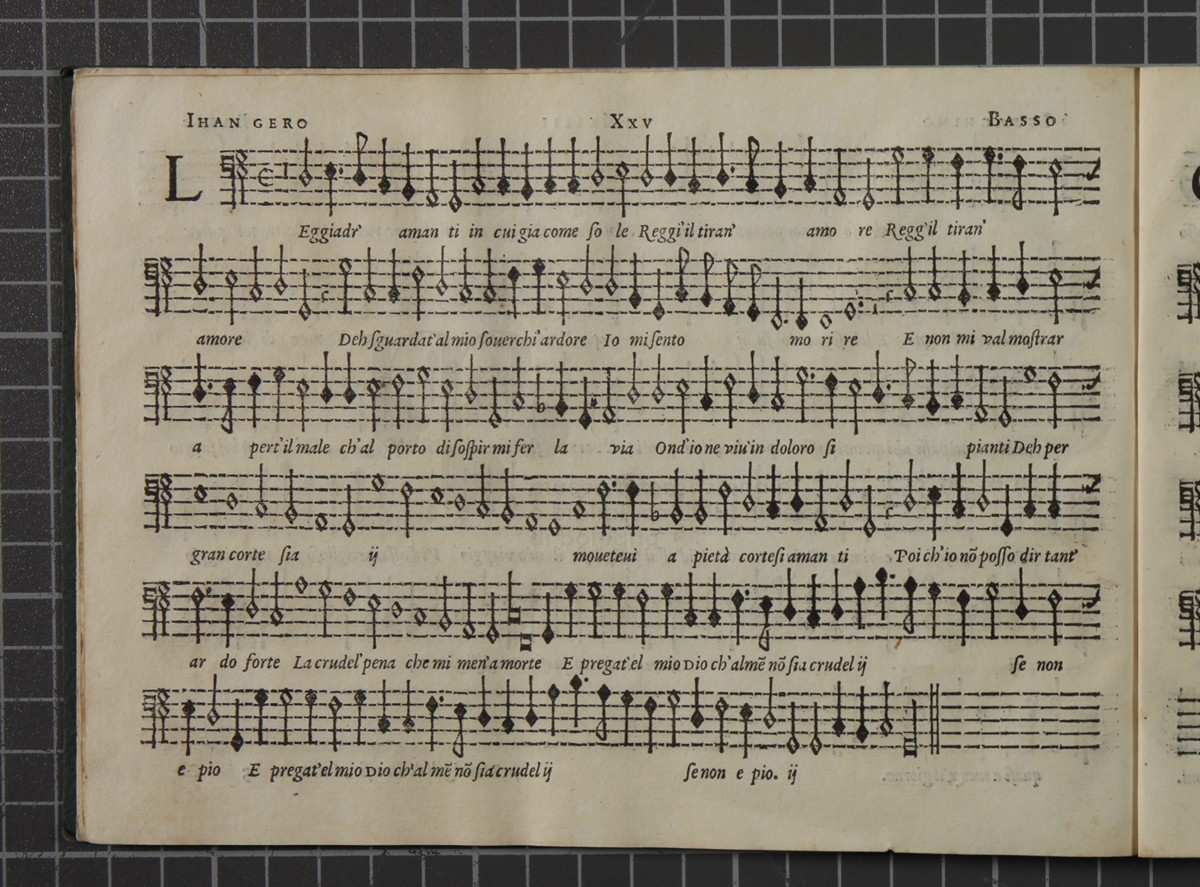 IHAN GERO XXV BASSO
L
Eggiadr' aman ti in cui gia come ſo le Reggi'il tiran' amo re Regg'il tiran'
amore Deh ſguardat'al mio ſouerchi'ardore Io mi ſento mo ri re E non mi val moſtrar
a pert'il male ch'al porto di ſoſpir mi fer la via Ond'io ne viu'in doloro ſi pianti Deh per
gran corte ſia ij moueteui a pietà corteſi aman ti Poi ch'io nõ poſſo dir tant'
ar do forte La crudel'pena che mi men'a morte E pregat'el mio Dio ch'al mẽ nõ ſia crudel ij ſe non
e pio E pregat'el mio Dio ch'al mẽ nõ ſia crudel ij ſe non e pio. ij